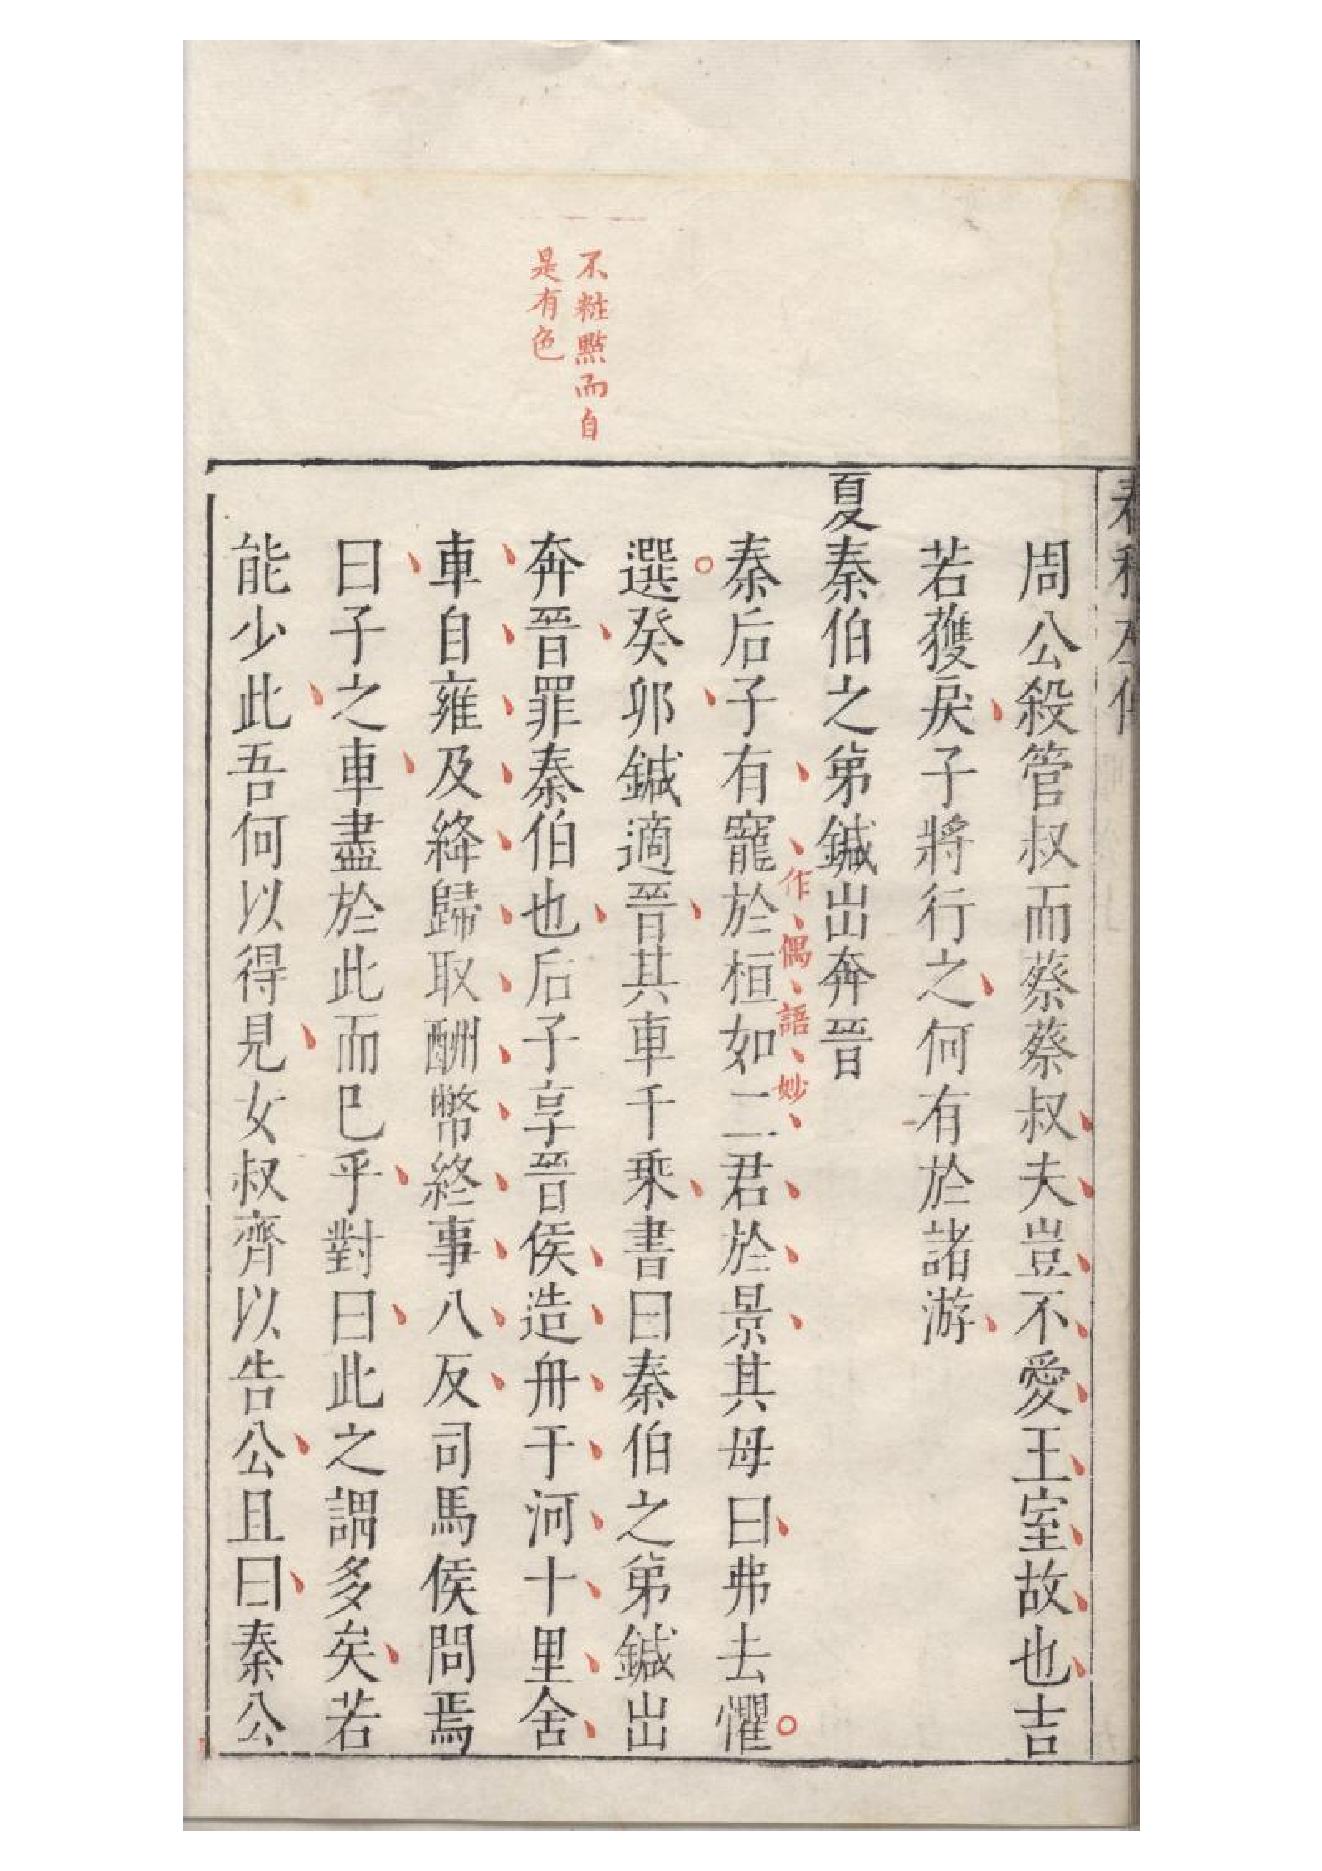 春秋左傳
周公殺管叔而蔡蔡叔夫豈不愛王室故也吉
若獲戾子將行之何有於諸游
夏秦伯之弟鍼出奔晉
作偶語妙
秦后子有寵於桓如二君於景其母曰弗去懼
選癸卯鍼適晉其車千乘書曰秦伯之弟鍼出
不粧點而自
是有色
奔晉罪秦伯也后子享晉侯造舟于河十里舍
車自雍及絳歸取酬幣終事八反司馬侯問焉
曰子之車盡於此而已乎對曰此之謂多矣若
能少此吾何以得見女叔齊以告公且曰秦公